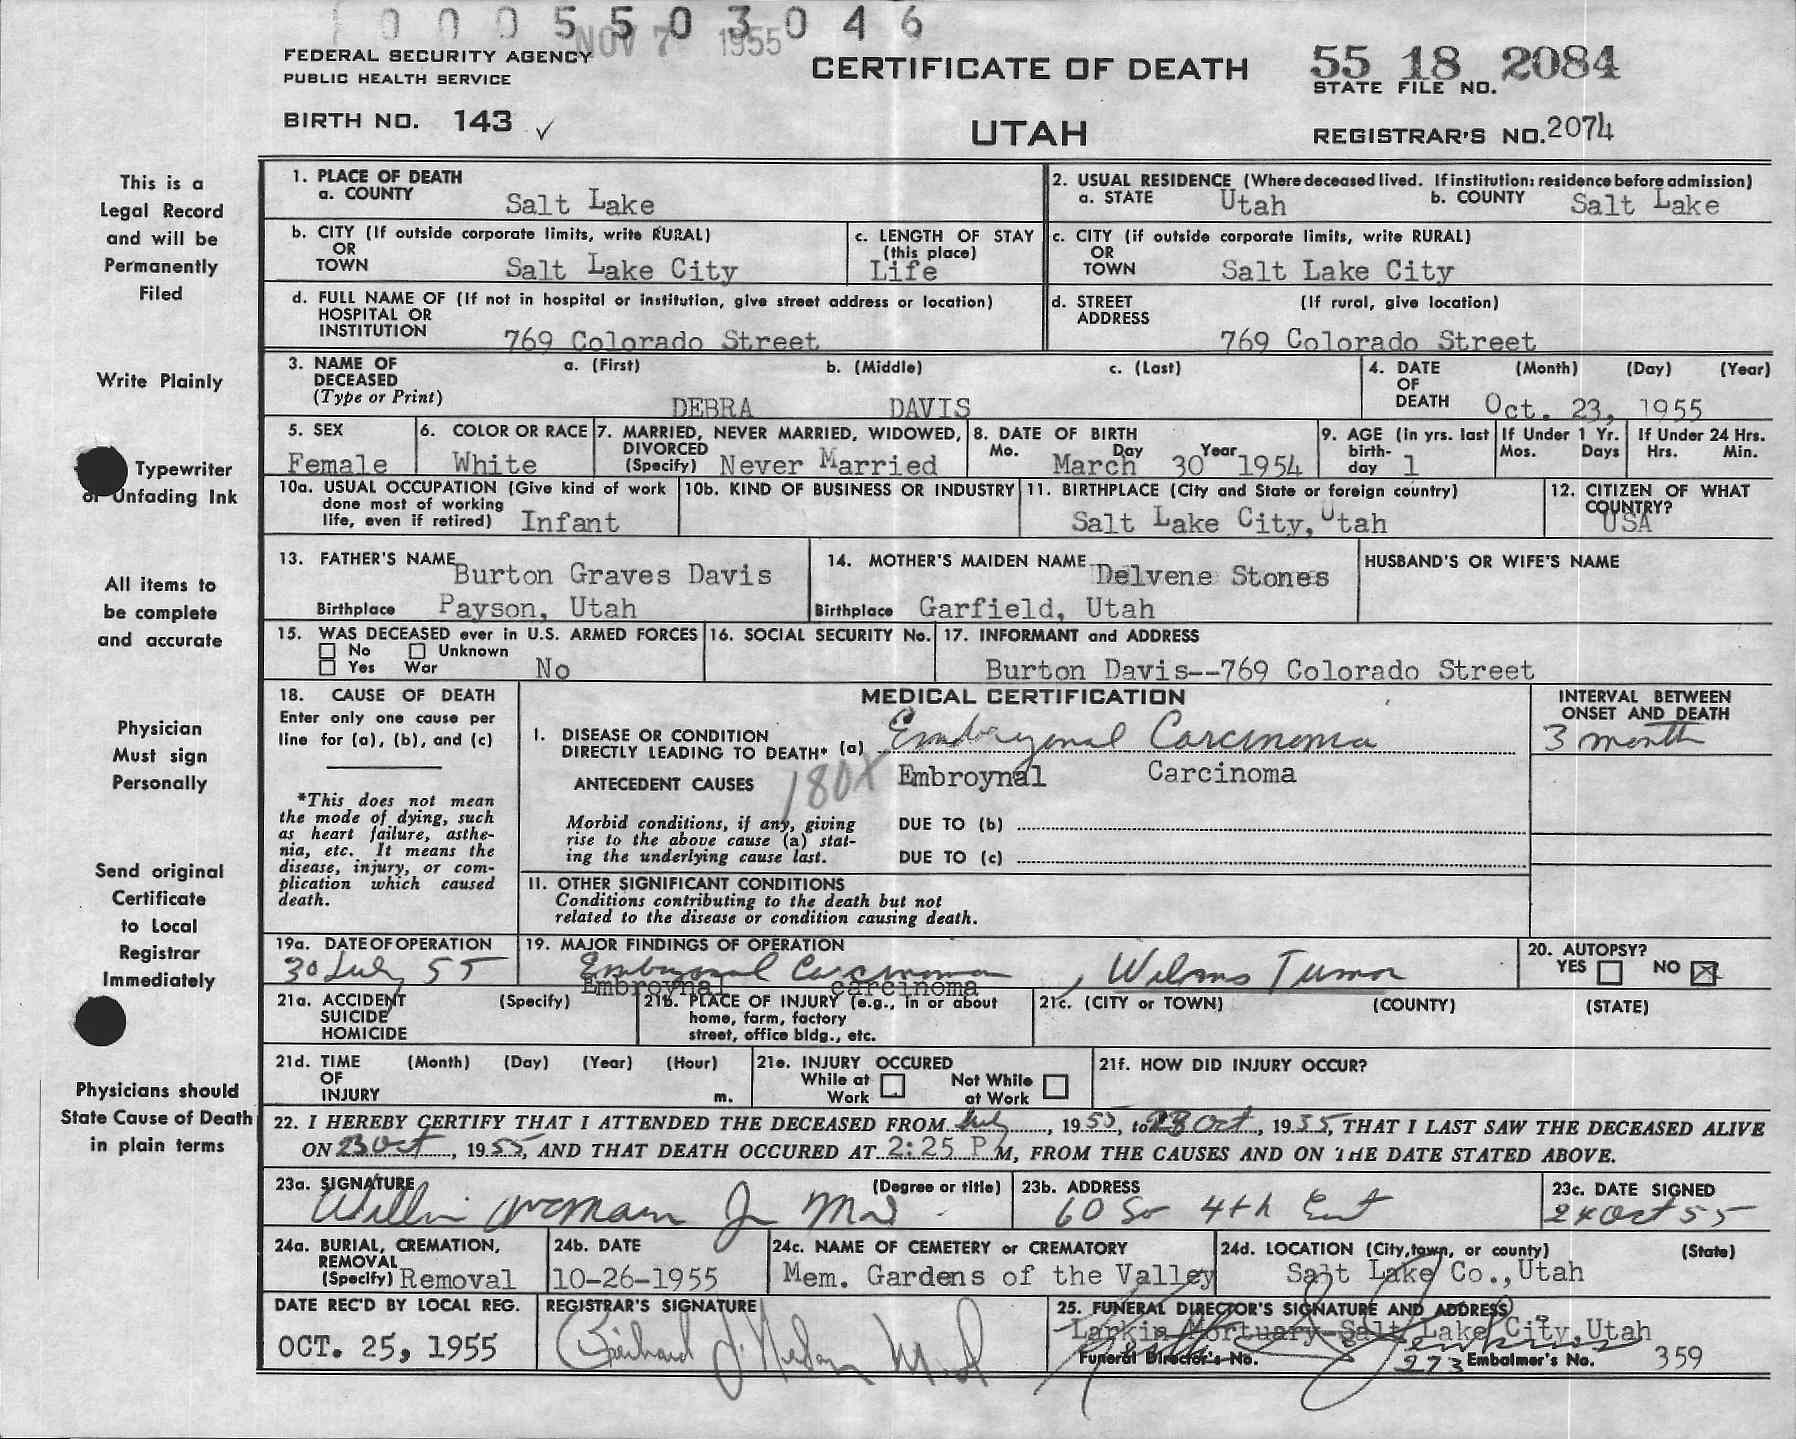 0005503046
NOV 7 1955
FEDERAL SECURITY AGENCY
PUBLIC HEALTH SERVICE
BIRTH NO. 143 ✓
CERTIFICATE OF DEATH
UTAH
55 18 2084
STATE FILE NO.
REGISTRAR'S NO. 2074
This is a
Legal Record
and will be
Permanently
Filed
Write Plainly
Typewriter
or Unfading Ink
All items to
be complete
and accurate
Physician
Must sign
Personally
Send original
Certificate
to Local
Registrar
Immediately
Physicians should
State Cause of Death
in plain terms
1. PLACE OF DEATH
a. COUNTY Salt Lake
2. USUAL RESIDENCE (Where deceased lived. If institution: residence before admission)
a. STATE Utah b. COUNTY Salt Lake
b. CITY (If outside corporate limits, write RURAL)
OR
TOWN Salt Lake City
c. LENGTH OF STAY
(this place)
Life
c. CITY (if outside corporate limits, write RURAL)
OR
TOWN Salt Lake City
d. FULL NAME OF (If not in hospital or institution, give street address or location)
HOSPITAL OR
INSTITUTION 769 Colorado Street
d. STREET (If rural, give location)
ADDRESS
769 Colorado Street
3. NAME OF a. (First) b. (Middle) c. (Last)
DECEASED
(Type or Print) DEBRA DAVIS
4. DATE (Month) (Day) (Year)
OF
DEATH Oct. 23, 1955
5. SEX
Female
6. COLOR OR RACE
White
7. MARRIED, NEVER MARRIED, WIDOWED,
DIVORCED
(Specify) Never Married
8. DATE OF BIRTH
Mo. Day Year
March 30 1954
9. AGE (In yrs. last
birth-
day 1
If Under 1 Yr.
Mos. Days
If Under 24 Hrs.
Hrs. Min.
10a. USUAL OCCUPATION (Give kind of work
done most of working
life, even if retired) Infant
10b. KIND OF BUSINESS OR INDUSTRY
11. BIRTHPLACE (City and State or foreign country)
Salt Lake City, Utah
12. CITIZEN OF WHAT
COUNTRY?
USA
13. FATHER'S NAME Burton Graves Davis
Birthplace Payson, Utah
14. MOTHER'S MAIDEN NAME Delvene Stones
Birthplace Garfield, Utah
HUSBAND'S OR WIFE'S NAME
15. WAS DECEASED ever in U.S. ARMED FORCES
No Unknown
Yes War No
16. SOCIAL SECURITY No.
17. INFORMANT and ADDRESS
Burton Davis--769 Colorado Street
18. CAUSE OF DEATH
Enter only one cause per
line for (a), (b), and (c)
*This does not mean
the mode of dying, such
as heart failure, asthe-
nia, etc. It means the
disease, injury, or com-
plication which caused
death.
MEDICAL CERTIFICATION
INTERVAL BETWEEN
ONSET AND DEATH
I. DISEASE OR CONDITION
DIRECTLY LEADING TO DEATH* (a) Embryonal Carcinoma
3 month
180X Embroynal Carcinoma
ANTECEDENT CAUSES
Morbid conditions, if any, giving
rise to the above cause (a) stat-
ing the underlying cause last.
DUE TO (b)
DUE TO (c)
II. OTHER SIGNIFICANT CONDITIONS
Conditions contributing to the death but not
related to the disease or condition causing death.
19a. DATE OF OPERATION
30 July 55
19. MAJOR FINDINGS OF OPERATION
Embryonal Carcinoma, Wilms Tumor
Embroynal carcinoma
20. AUTOPSY?
YES NO X
21a. ACCIDENT (Specify)
SUICIDE
HOMICIDE
21b. PLACE OF INJURY (e.g., in or about
home, farm, factory
street, office bldg., etc.
21c. (CITY or TOWN) (COUNTY) (STATE)
21d. TIME (Month) (Day) (Year) (Hour)
OF
INJURY m.
21e. INJURY OCCURED
While at Not While
Work at Work
21f. HOW DID INJURY OCCUR?
22. I HEREBY CERTIFY THAT I ATTENDED THE DECEASED FROM July, 1955, to 23 Oct, 1955, THAT I LAST SAW THE DECEASED ALIVE
ON 23 Oct, 1955, AND THAT DEATH OCCURED AT 2:25 P M, FROM THE CAUSES AND ON THE DATE STATED ABOVE.
23a. SIGNATURE (Degree or title)
Jr MD
23b. ADDRESS
60 So 4th East
23c. DATE SIGNED
24 Oct 55
24a. BURIAL, CREMATION,
REMOVAL
(Specify) Removal
24b. DATE
10-26-1955
24c. NAME OF CEMETERY or CREMATORY
Mem. Gardens of the Valley
24d. LOCATION (City, town, or county) (State)
Salt Lake Co., Utah
DATE REC'D BY LOCAL REG.
OCT. 25, 1955
REGISTRAR'S SIGNATURE
25. FUNERAL DIRECTOR'S SIGNATURE AND ADDRESS
Larkin Mortuary-Salt Lake City, Utah
Funeral Director's No. 273 Embalmer's No. 359